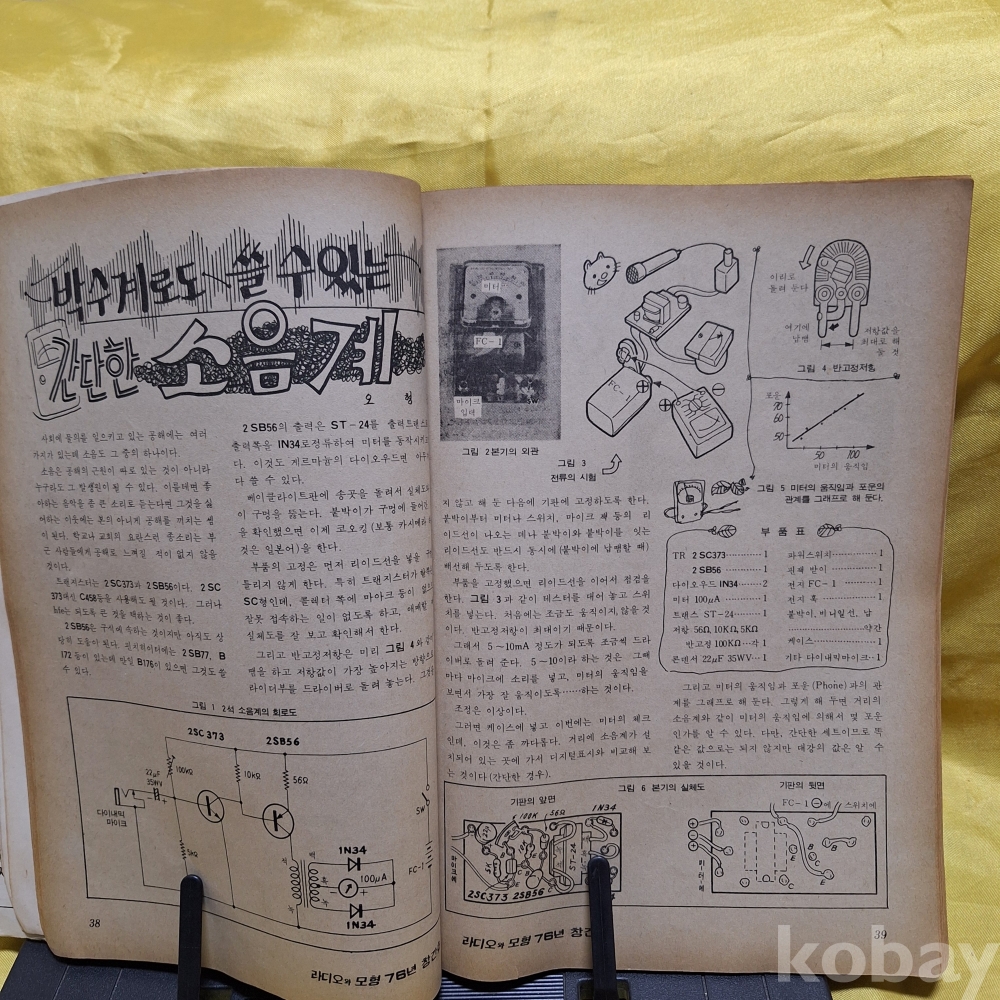 박수계로도 쓸 수 있는
간단한 소음계
오 형
사회에 물의를 일으키고 있는 공해에는 여러
가지가 있는데 소음도 그 중의 하나이다.
소음은 공해의 근원이 따로 있는 것이 아니라
누구라도 그 발생원이 될 수 있다. 이를테면 좋
아하는 음악을 좀 큰 소리로 듣는다면 그것을 싫
어하는 이웃에는 본의 아니게 공해를 끼치는 셈
이 된다. 학교나 교회의 요란스런 종소리는 부
근 사람들에게 공해로 느껴질 적이 없지 않을
것이다.
트랜지스터는 2SC373과 2SB56이다. 2SC
373대신 C458등을 사용해도 될 것이다. 그러나
hfe는 되도록 큰 것을 택하는 것이 좋다.
2SB56은 구식에 속하는 것이지만 아직도 상
당히 도움이 된다. 핀치히터에는 2SB77, B
172 등이 있는데 만일 B176이 있으면 그것도 쓸
수 있다.
2SB56의 출력은 ST-24를 출력트랜스
출력쪽을 IN34로정류하여 미터를 동작시키고
다. 이것도 게르마늄의 다이오우드면 아무
다 쓸 수 있다.
베이클라이트판에 송곳을 돌려서 실체도
이 구멍을 뚫는다. 붙박이가 구멍에 들어간
을 확인했으면 이제 코오킹(보통 카시메라
것은 일본어)을 한다.
부품의 고정은 먼저 리이드선을 넣을 구
틀리지 않게 한다. 특히 트랜지스터가
SC형인데, 콜렉터 쪽에 마아크 등이 없으
잘못 접속하는 일이 없도록 하고, 애매할
실체도를 잘 보고 확인해서 한다.
그리고 반고정저항은 미리 그림 4와 같이
땜을 하고 저항값이 가장 높아지는 방향으로
라이더부를 드라이버로 돌려 놓는다. 그것
그림 1 2석 소음계의 회로도
2SC373
2SB56
22μF
35WV
100KΩ
10KΩ
56Ω
다이내믹
마이크
5kΩ
SW
적
백
흑
1N34
100μA
FC-1
1N34
38
라디오와 모형 76년 창간
미터
FC-1
마이크
입력
SW
그림 2본기의 외관
FC-1
그림 3
전류의 시험
이리로
돌려 둔다
여기에
납땜
저항값을
최대로 해
놓 것
그림 4 반고정저항
포운
70
60
50
50 100
미터의 움직임
그림 5 미터의 움직임과 포운의
관계를 그래프로 해 둔다.
지 않고 해 둔 다음에 기판에 고정하도록 한다.
붙박이부터 미터나 스위치, 마이크 잭 등의 리
이드선이 나오는 데나 붙박이와 붙박이를 잇는
리이드선도 반드시 동시에(붙박이에 납땜할 때)
배선해 두도록 한다.
부품을 고정했으면 리이드선을 이어서 점검을
한다. 그림 3과 같이 테스터를 대어 놓고 스위
치를 넣는다. 처음에는 조금도 움직이지 않을 것
이다. 반고정저항이 최대이기 때문이다.
그래서 5~10mA 정도가 되도록 조금씩 드라
이버로 돌려 준다. 5~10이라 하는 것은 그때
마다 마이크에 소리를 넣고, 미터의 움직임을
보면서 가장 잘 움직이도록……하는 것이다.
조정은 이상이다.
그러면 케이스에 넣고 이번에는 미터의 체크
인데, 이것은 좀 까다롭다. 거리에 소음계가 설
치되어 있는 곳에 가서 디지털표시와 비교해 보
는 것이다(간단한 경우).
부 품 표
TR 2SC373…………1
2SB56…………1
다이오우드 IN34……2
미터 100μA…………1
트랜스 ST-24………1
저항 56Ω, 10KΩ, 5KΩ
반고정 100KΩ…각 1
콘덴서 22μF 35WV…1
파워스위치…………1
핀잭 받이……………1
전지 FC-1……………1
전지 훅………………1
붙박이, 비니일선, 납
…………약간
케이스………………1
기타 다이내믹마이크…1
그리고 미터의 움직임과 포운(Phone)과의 관
계를 그래프로 해 둔다. 그렇게 해 두면 거리의
소음계와 같이 미터의 움직임에 의해서 몇 포운
인가를 알 수 있다. 다만, 간단한 세트이므로 똑
같은 값으로는 되지 않지만 대강의 값은 알 수
있을 것이다.
그림 6 본기의 실체도
기판의 앞면
기판의 뒷면
마이크에
22μ
100K
56Ω
1N34
5K
ST-24
2SC373 2SB56
FC-1 ⊖에
스위치에
미터에
E
B
C
라디오와 모형 76년 창간
39
kobay